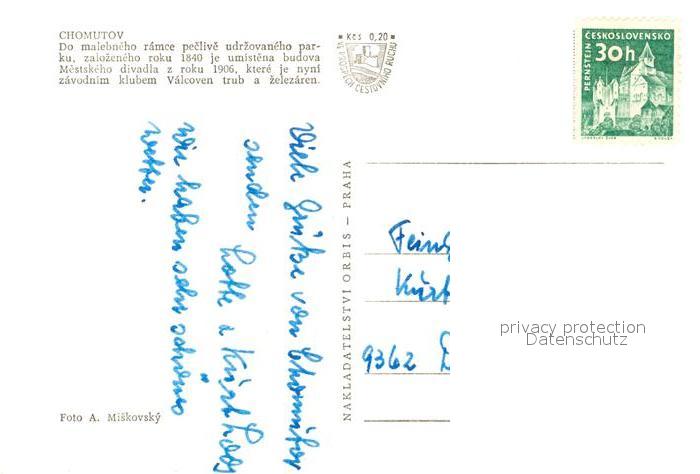 CHOMUTOV
Do malebného rámce pečlivě udržovaného par-
ku, založeného roku 1840 je umístěna budova
Městského divadla z roku 1906, které je nyní
závodním klubem Válcoven trub a železáren.
Kčs 0,20
VE PROSPĚCH CESTOVNÍHO RUCHU
ČESKOSLOVENSKO
30h
PERNŠTEJN
Viele Grüße von Chomutov
senden
Lotte u. Kurt
Wir haben sehr schönes
Wetter.
NAKLADATELSTVÍ ORBIS – PRAHA
Kurt
9362
privacy protection
Datenschutz
Foto A. Miškovský